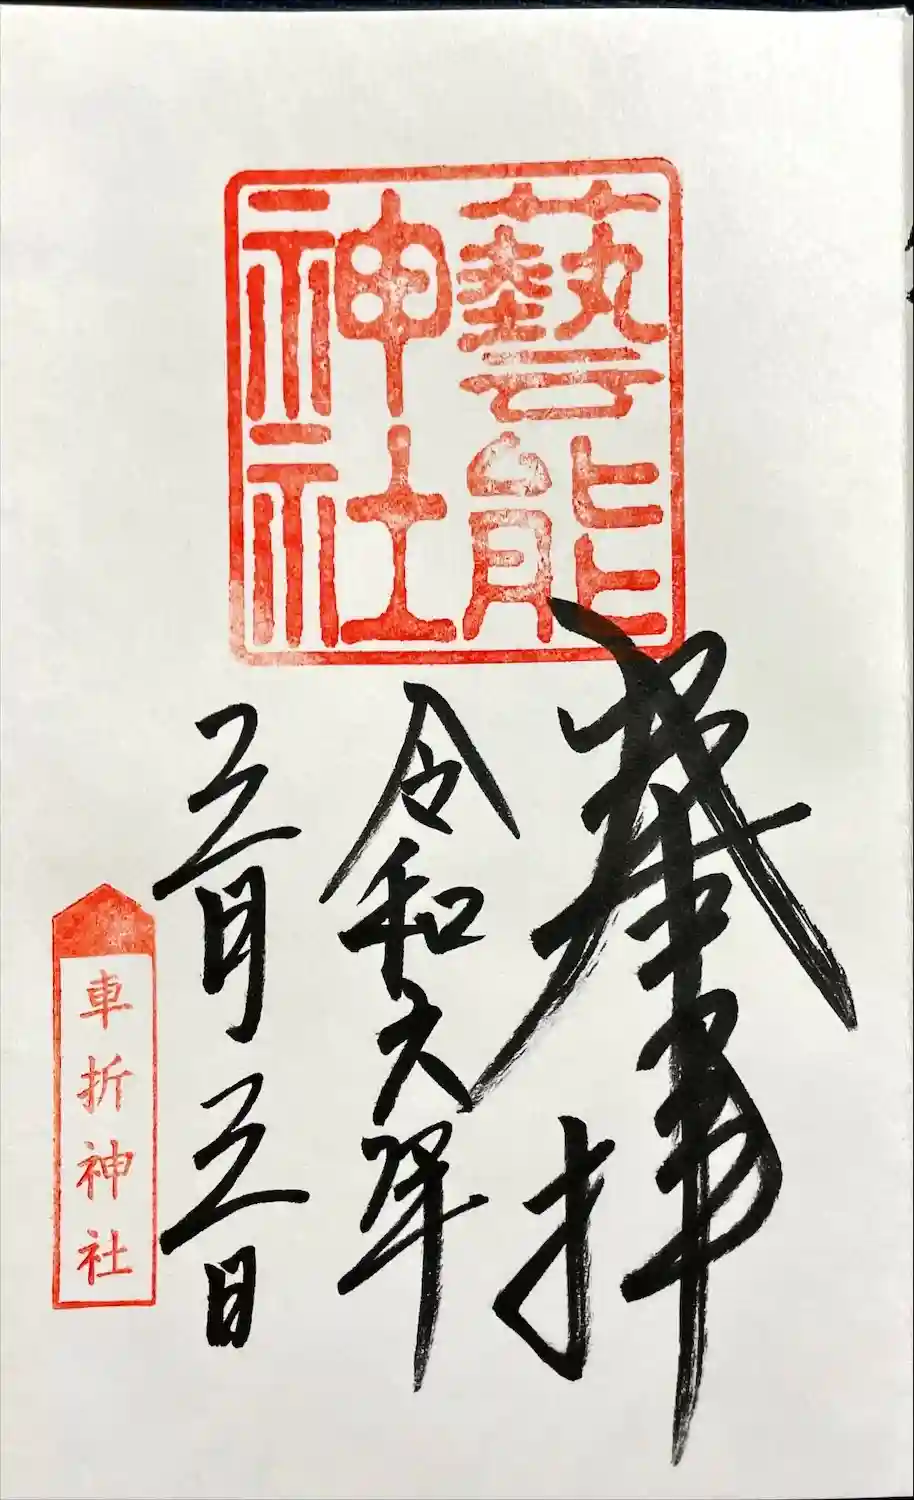 藝能
神社
奉拝
令和六年
五月五日
車折神社